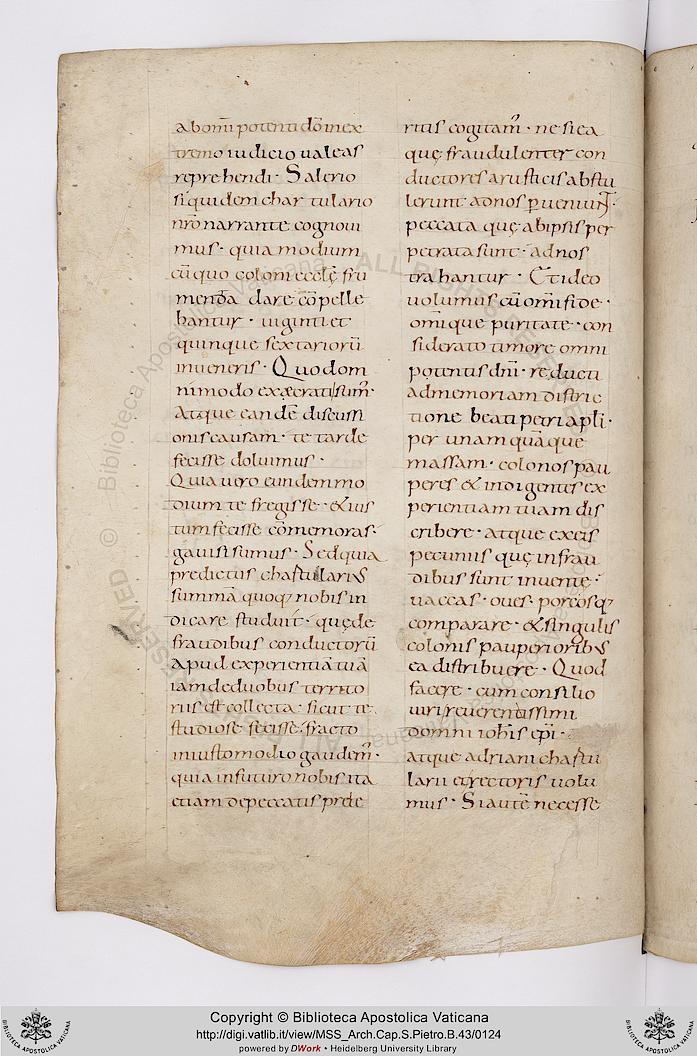 abom̅ipotenti do̅ in ex
tremo iudicio ualeas
reprehendi · Salerio
siquidem char tulario
nr̅o narrante cognoui
mus · quia modium
cu̅ quo coloni eccle̅ fru
menda dare co̅pelle
bantur · uiginti et
quinque sextarioru̅
inueneris · Quod om
nimodo exgerati sum̅ ·
Atque eande̅ discussi
onis causam · te tarde
fecisse doluimus ·
Quia uero eundem mo
dium te fregisse · & ius
tum fecisse co̅memoras ·
gauisi sumus · Sed quia
predictus chartularius
summa̅ quoq; nobis in
dicare studuit · quę de
fraudibus conductoru̅
apud experientia̅ tua̅
iam de duobus territo
riis est collecta · sicut te
studiose fecisse fracto
iniusto modio gaudem̅ ·
quia in futuro nobis ita
etiam de peccatis prete
ritis cogitam̅ · ne si ea
quę fraudulenter con
ductores a rusticis abstu
lerunt ad nos p̱ueniun̅t
peccata quę ab ipsis per
petrata sunt · ad nos
trahantur · Et ideo
uolumus cu̅ om̅i fide ·
om̅ique puritate · con
siderato timore omni
potentis dn̅i · reducti
ad memoriam distric
tione beati petri apl̅i ·
per unam qua̅que
massam · colonos pau
peres & indigentes ex
perientiam tuam dis
cribere · atque ex eis
pecuniis quę in frau
dibus sunt inuente ·
uaccas · oues · porcosq;
comparare · & singulis
colonis pauperioribus
ea distribuere · Quod
facere · cum consilio
uiri reuerentissimi
domni ioh̅is ep̅i ·
atque adriani chartu
larii et rectoris uolu
mus · Si aute̅ necesse
Copyright © Biblioteca Apostolica Vaticana
http://digi.vatlib.it/view/MSS_Arch.Cap.S.Pietro.B.43/0124
powered by DWork • Heidelberg University Library